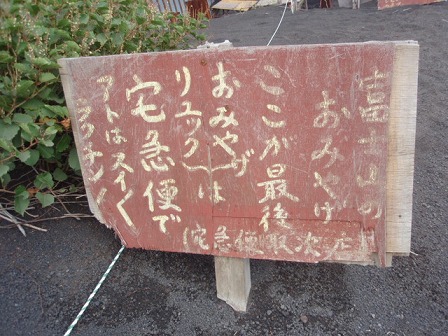 富士山の
おみやげ
ここが最後
おみやげ
リュックは
宅急便で
アトはスイくヘ
ラクチン
(宅急便取次店)